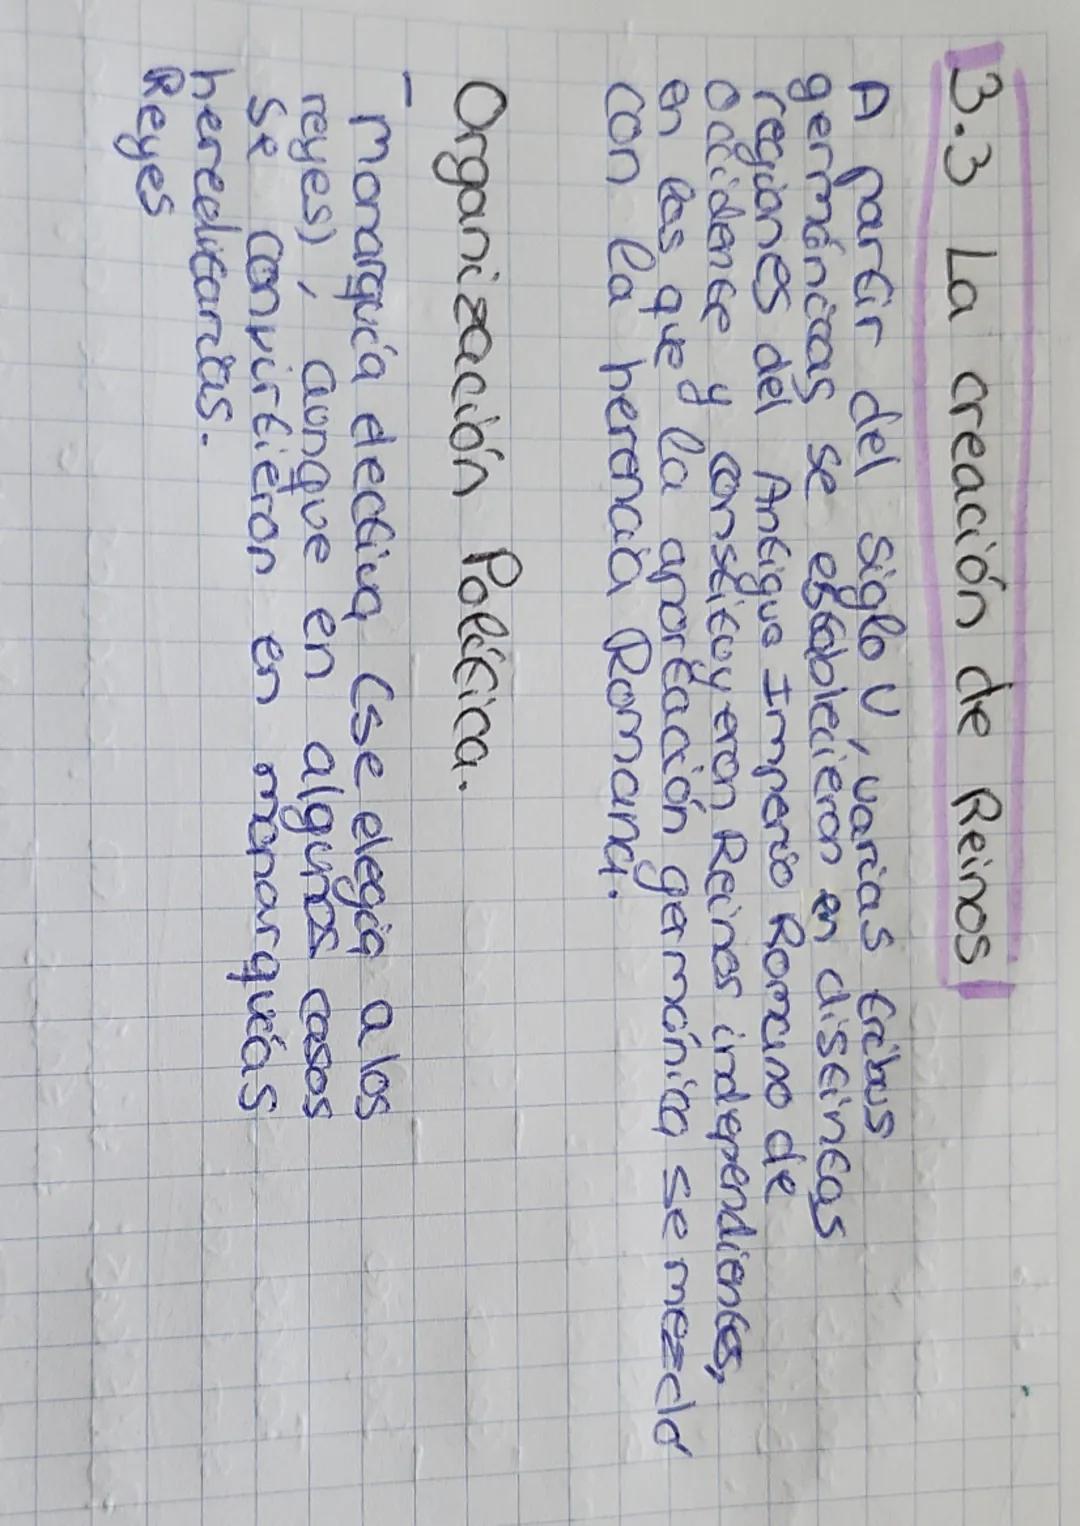 3.3 La creación de Reinos
A partir del siglo V, varias tribus
germánicas se establecieron en distintas
regiones del Antiguo Imperio Romano de
occidente y constituyeron Reinos independientes,
en las que la aportación germánica se mezcló
con la herencia Romana.
Organización Política.
- monarquía electiva (se elegía a los
reyes), aunque en algunos casos
se convirtieron en monarquías
hereditarias.
Reyes